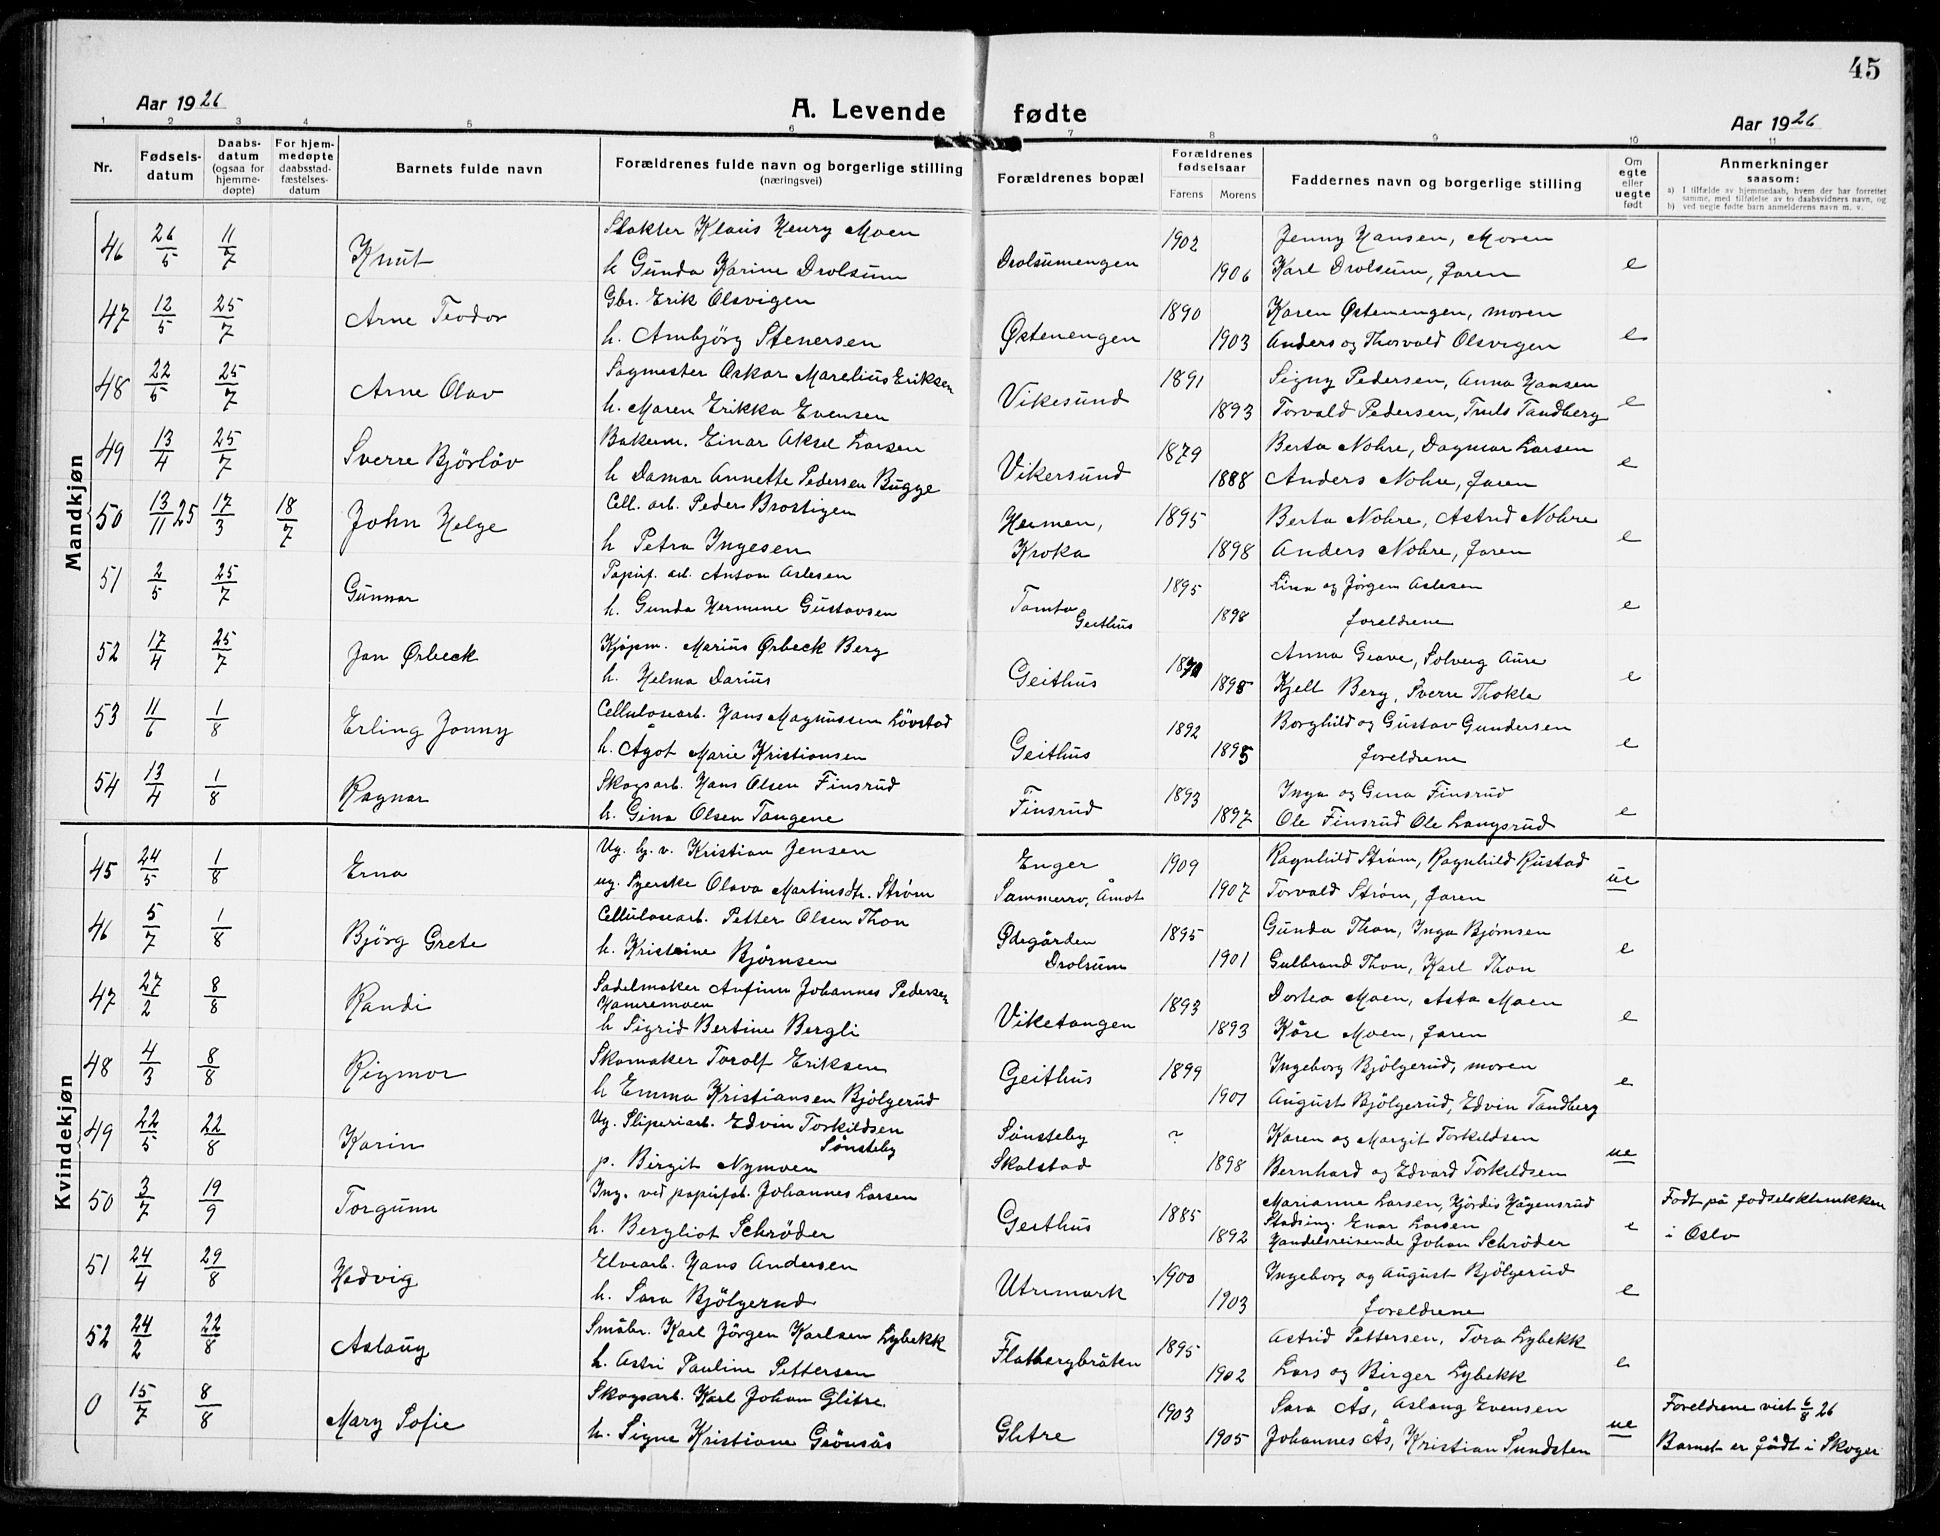 45
Aar 1926
A. Levende fødte
Aar 1926
1 2 3 4 5 6 7 8 9 10 11
Nr. | Fødselsdatum | Daabsdatum (ogsaa for hjemmedøpte) | For hjemmedøpte daabsstadfæstelsesdatum | Barnets fulde navn | Forældrenes fulde navn og borgerlige stilling (næringsvei) | Forældrenes bopæl | Forældrenes fødselsaar Farens Morens | Faddernes navn og borgerlige stilling | Om egte eller uegte født | Anmerkninger saasom: a) I tilfælde av hjemmedaab, hvem der har forrettet samme, med tilføielse av to daabsvidners navn, og b) ved uegte fødte barn anmelderens navn m. v.
Mandkjøn
46 26/5 11/7 Knut Slakter Klaus Henry Moen Drolsumengen 1902 Jenny Hansen, Moren e
h Gunda Karine Drolsum 1906 Karl Drolsum, faren
47 12/5 25/7 Arne Teodor Gbr. Erik Olsvigen Østenengen 1890 Karen Østenengen, moren e
h. Ambjörg Stenersen 1903 Anders og Thorvald Olsvigen
48 22/5 25/7 Arne Olav Sagmester Oskar Marelius Eriksen Vikesund 1891 Signy Pedersen, Anna Hansen e
h. Maren Erikka Evensen 1893 Torvald Pedersen, Truls Tandberg
49 13/4 25/7 Sverre Bjørlöv Bakerm. Einar Aksel Larsen Vikersund 1879 Berta Nohre, Dagmar Larsen e
h Damar Annette Pedersen Bugge 1888 Anders Nohre, faren
50 13/11 25 17/3 18/7 John Helge Cell. arb. Peder Brostigen Hermen, 1895 Berta Nohre, Astrid Nohre e
h Petra Ingesen Kroka 1898 Anders Nohre, faren
51 2/5 25/7 Gunnar Papirf. arb. Anton Aslesen Tomta 1895 Lina og Jörgen Aslesen e
h. Gunda Hermine Gustavsen Geithus 1898 foreldrene
52 17/4 25/7 Jan Ørbeck Kjøpm. Marius Ørbeck Berg Geithus 1870 Anna Grave, Solveig Aure e
h. Helma Darius 1898 Kjell Berg, Sverre Thokle
53 11/6 1/8 Erling Jonny Cellulosearb. Hans Magnussen Lövstad Geithus 1892 Borghild og Gustav Gundersen e
h. Ågot Marie Kristiansen 1895 foreldrene
54 13/4 1/8 Ragnar Skogsarb. Hans Olsen Finsrud Finsrud 1893 Inga og Gina Finsrud e
h. Gina Olsen Tangene 1897 Ole Finsrud Ole Langsrud
Kvindekjøn
45 24/5 1/8 Erna Ug. g. v. Kristian Jensen Enger 1909 Ragnhild Strøm, Ragnhild Rustad ue
ug. Syerske Olava Martinsdtr. Strøm Sammerro, Åmot 1907 Torvald Strøm, faren
46 5/7 1/8 Björg Grete Cellulosearb. Petter Olsen Thon Ødegården 1895 Gunda Thon, Inga Bjørnsen e
h. Kristeine Bjørnsen Drolsum 1901 Gulbrand Thon, Karl Thon
47 27/2 8/8 Randi Sadelmaker Anfinn Johannes Pedersen Viketangen 1893 Dorhea Moen, Asta Moen e
Hamremoen
h Sigrid Bertine Bergli 1893 Kåre Moen, faren
48 4/3 8/8 Rigmor Skomaker Torolf Eriksen Geithus 1899 Ingeborg Bjölgerud, moren e
h Emma Kristiansen Bjölgerud 1901 August Bjölgerud, Edvin Tandberg
49 22/5 22/8 Karin Ug. Sliperiarb. Edvin Torkildsen Sønsteby Sønsteby ? Karen og Margit Torkildsen ue
p. Birgit Nymoen Skalstad 1898 Bernhard og Edvard Torkildsen
50 3/7 19/9 Torgunn Ing. ved papirfab. Johannes Larsen Geithus 1885 Marianne Larsen, Hjördis Hågensrud e Födt på fødselsklinikken
Stadsing. Enar Larsen
h. Bergliot Schröder 1892 Handelsreisende Johan Schröder i Oslo
51 24/4 29/8 Hedvig Elvearb. Hans Andersen Utremark 1900 Ingeborg og August Bjölgerud e
h. Sara Bjölgerud 1903 foreldrene
52 24/2 22/8 Aslaug Småbr. Karl Jörgen Karlsen Lybekk Flatbergbråten 1895 Astrid Pettersen, Tora Lybekk e
h. Astri Pauline Pettersen 1902 Lars og Birger Lybekk
0 15/7 8/8 Mary Sofie Skogsarb. Karl Johan Glitre Glitre 1903 Sara Ås, Aslaug Evensen ue Foreldrene viet 6/8 26
h. Signe Kristiane Grönsås 1905 Johannes Ås, Kristian Sundsten Barnet er födt i Skoger